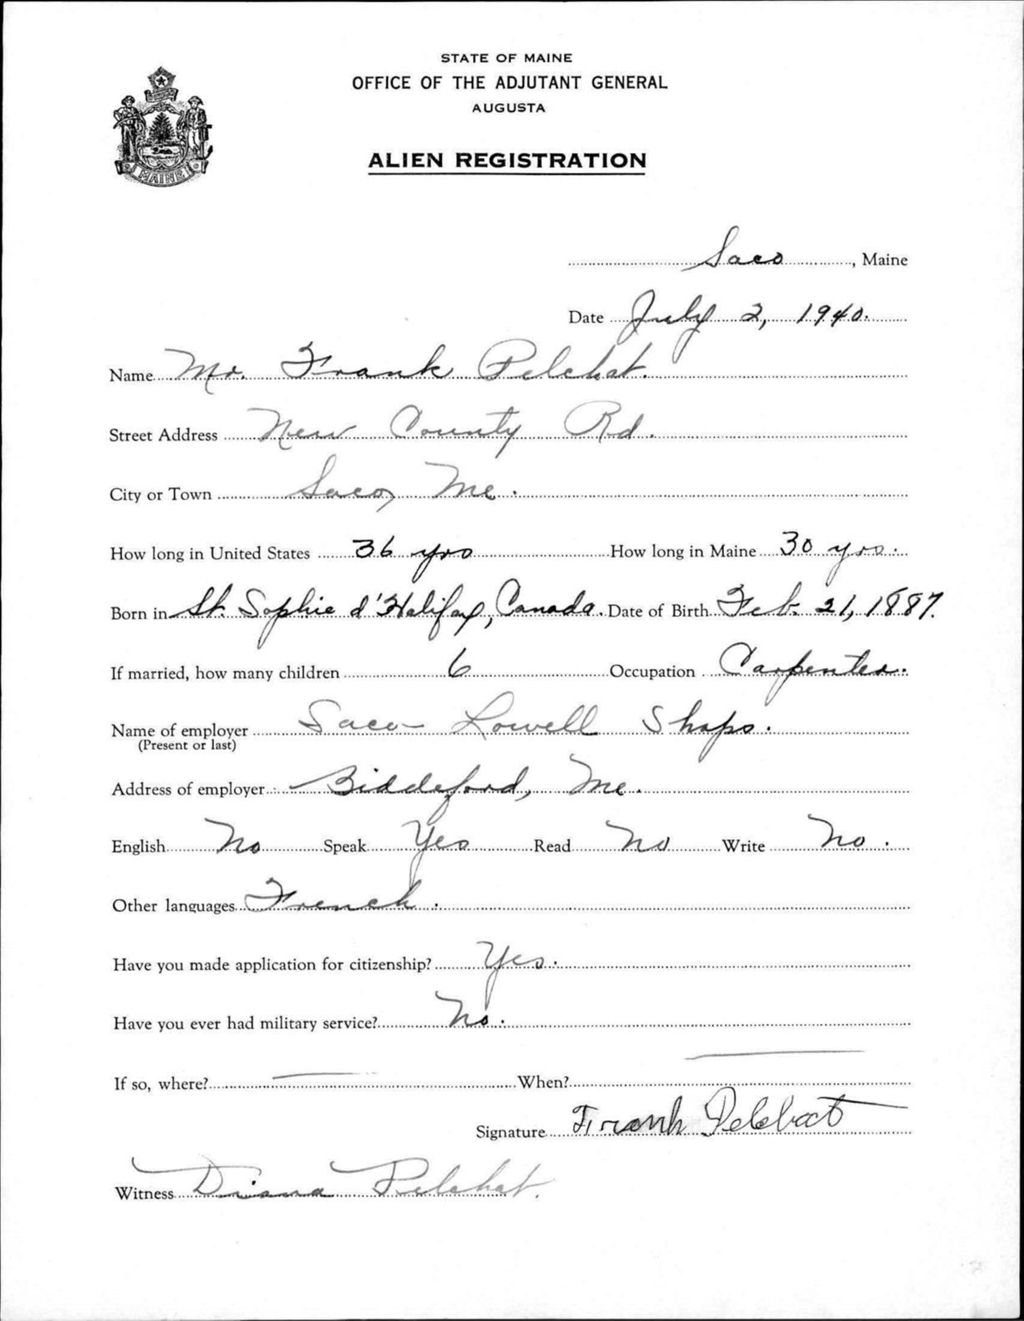 STATE OF MAINE
OFFICE OF THE ADJUTANT GENERAL
AUGUSTA
ALIEN REGISTRATION
MAINE
Saco, Maine
Date July 2, 1940.
Name Mr. Frank Pelchat.
Street Address New County Rd.
City or Town Saco, Me.
How long in United States 36 yrs How long in Maine 30 yrs.
Born in St. Sophie d'Halifax, Canada. Date of Birth Feb. 21, 1887.
If married, how many children 6 Occupation Carpenter.
Name of employer Saco-Lowell Shops.
(Present or last)
Address of employer Biddeford, Me.
English No Speak Yes Read No Write No.
Other languages French.
Have you made application for citizenship? Yes.
Have you ever had military service? No.
If so, where? — When? —
Signature Frank Pelchat
Witness Diana Pelchat.